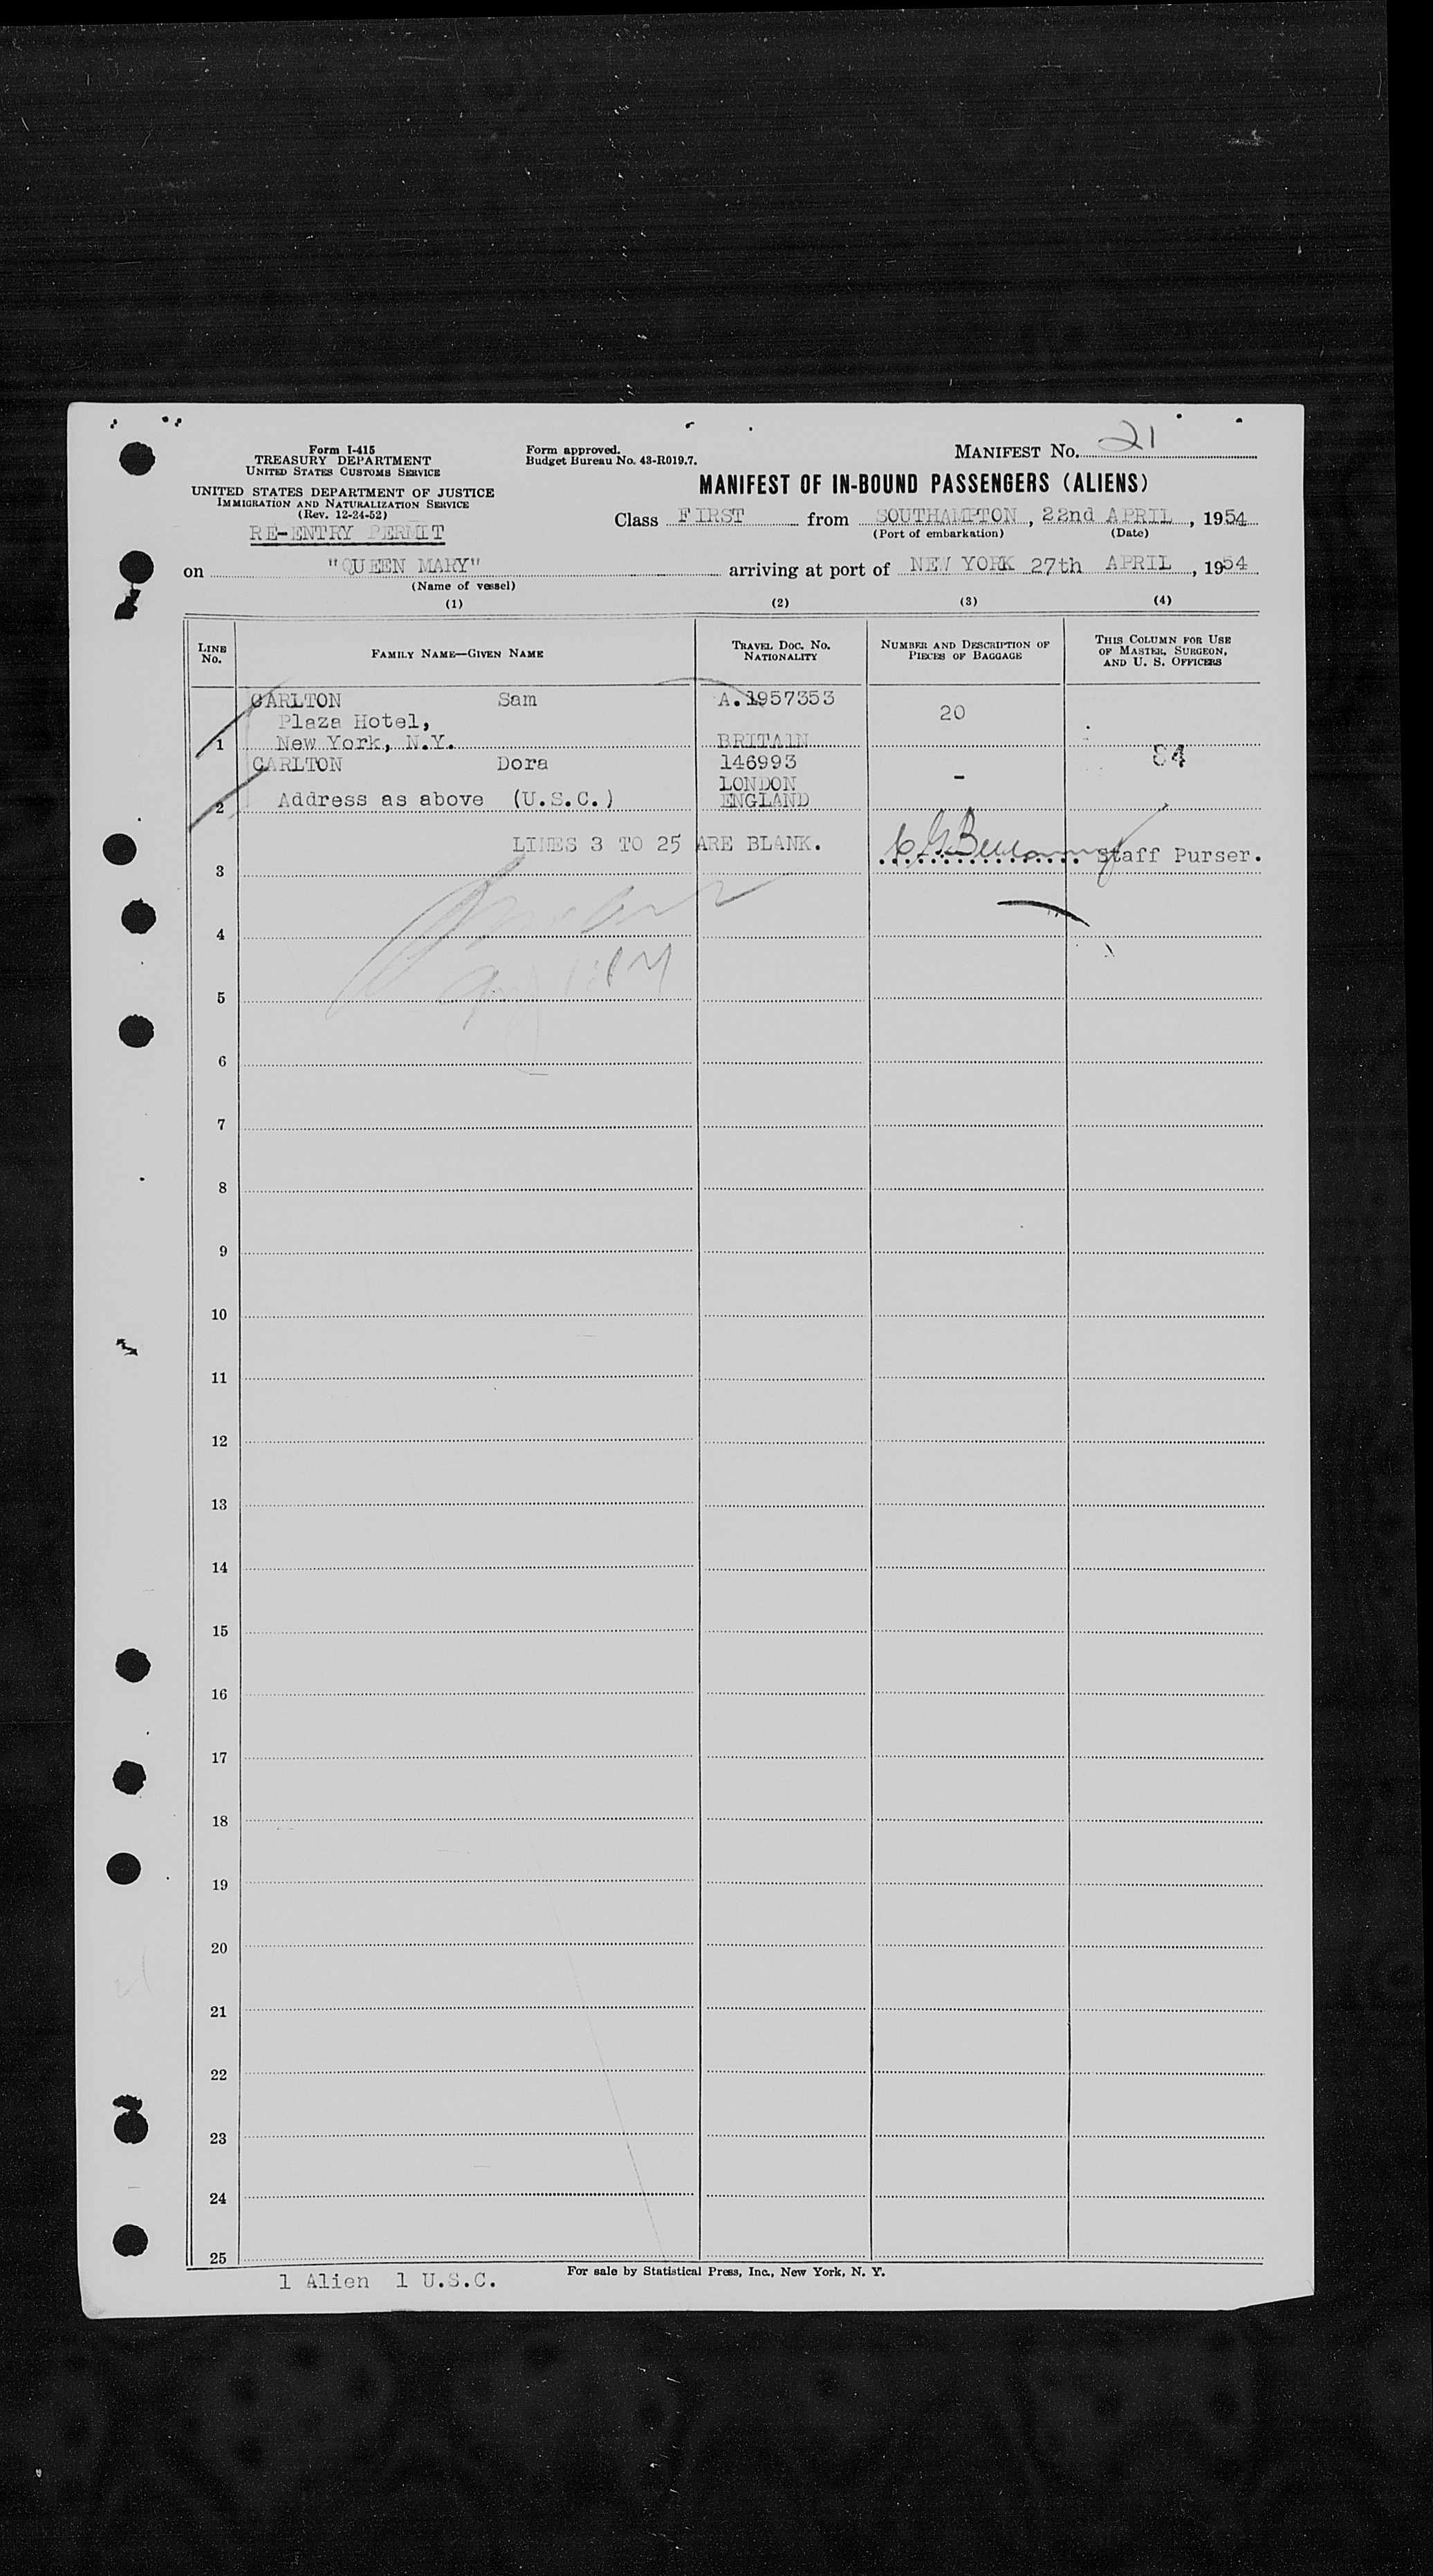 Form I-415
TREASURY DEPARTMENT
UNITED STATES CUSTOMS SERVICE
UNITED STATES DEPARTMENT OF JUSTICE
IMMIGRATION AND NATURALIZATION SERVICE
(Rev. 12-24-52)
RE-ENTRY PERMIT
Form approved.
Budget Bureau No. 43-R019.7.
MANIFEST No. 21
MANIFEST OF IN-BOUND PASSENGERS (ALIENS)
Class FIRST from SOUTHAMPTON, 22nd APRIL, 1954
(Port of embarkation) (Date)
on "QUEEN MARY" arriving at port of NEW YORK 27th APRIL, 1954
(Name of vessel)
(1) (2) (3) (4)
LINE No. FAMILY NAME—GIVEN NAME TRAVEL DOC. No. NATIONALITY NUMBER AND DESCRIPTION OF PIECES OF BAGGAGE THIS COLUMN FOR USE OF MASTER, SURGEON, AND U. S. OFFICERS
CARLTON Sam A.1957353
Plaza Hotel, 20
1 New York, N.Y. BRITAIN
CARLTON Dora 146993 84
LONDON -
2 Address as above (U.S.C.) ENGLAND
LINES 3 TO 25 ARE BLANK. Staff Purser.
3
4
5
6
7
8
9
10
11
12
13
14
15
16
17
18
19
20
21
22
23
24
25
For sale by Statistical Press, Inc., New York, N. Y.
1 Alien 1 U.S.C.